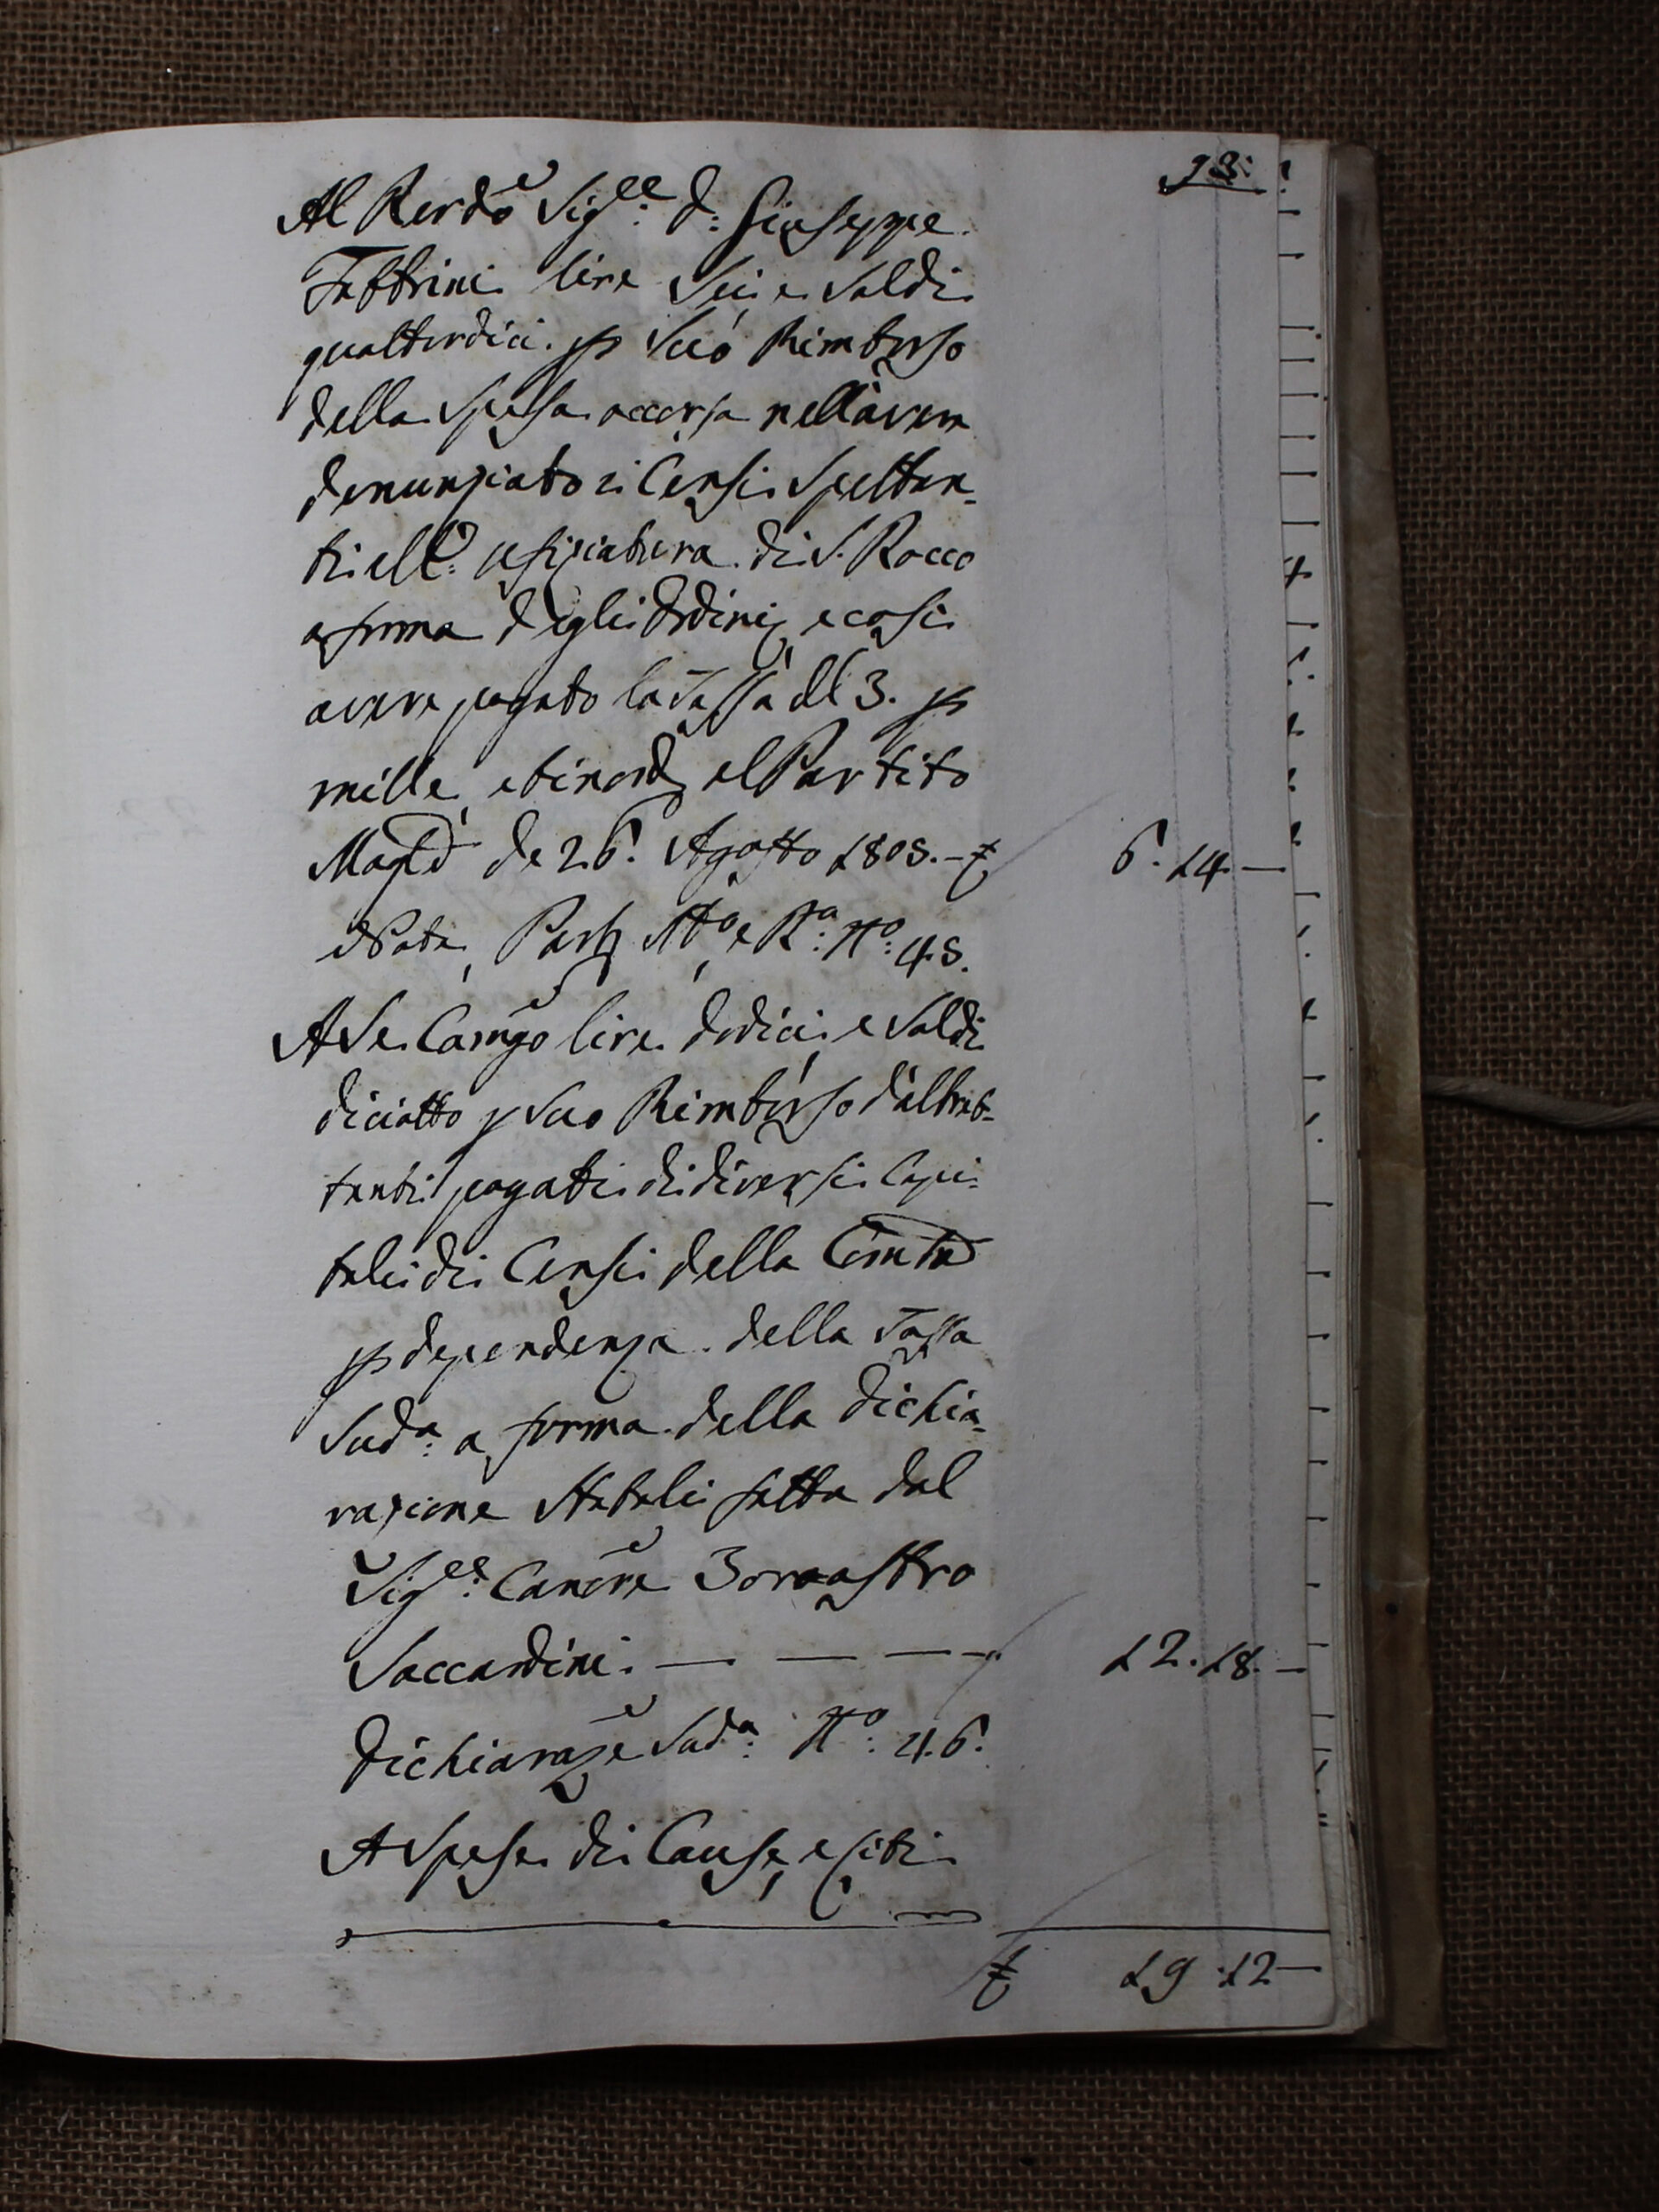 93:
Al Revdo Sigre: D: Giuseppe
Fabbrini lire Sei e Soldi
quattordici p Suo Rimborso
della Spesa occorsa nell'aver
denunziato i Censi Spettan-
ti all' ufiziatura di S. Rocco
a forma degli Ordini, e così
avere pagato la Tassa del 3. p
mille, ed in ord. al Partito
Magle de 26. Agosto 1805. – £ 6. 14 –
Nota, Part. Mto, e Ra: No: 45.
A Se Camgo lire dodici, e Soldi
diciotto p Suo Rimborso d'altret-
tanti pagati di diversi Capi-
tali di Censi della Comtà
p dependenza della Tassa
Suda: a forma della Dichia-
razione Natali fatta dal
Sigre: Cancre Zoroastro
Saccardini. — — — 12. 18. –
Dichiaraze Suda: No: 46.
A Spese di Cause, e liti
£ 19. 12 –